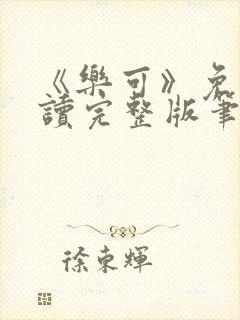 《樂可》免
讀完整版筆
徐東輝